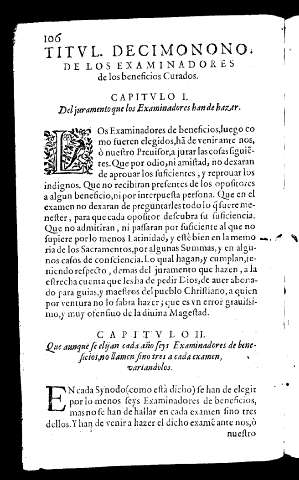 106
TITVL. DECIMONONO.
DE LOS EXAMINADORES
de los beneficios Curados.
CAPITVLO I.
Del juramento que los Examinadores han de hazer.
LOs Examinadores de beneficios, luego co
mo fueren elegidos, hã de venir ante nos,
ò nuestro Prouisor, a jurar las cosas siguiē
tes. Que por odio, ni amistad, no dexaran
de aprouar los suficientes, y reprouar los
indignos. Que no recibiran presentes de los opositores
a algun beneficio, ni por interpuesta persona. Que en el
examen no dexaran de preguntarles todo lo q̃ fuere me-
nester, para que cada opositor descubra su suficiencia.
Que no admitiran, ni passaran por suficiente al que no
supiere por lo menos Latinidad, y estè bien en la memo
ria de los Sacramentos, por algunas Summas, y en algu-
nos casos de consciencia. Lo qual hagan, y cumplan, te-
niendo respecto, demas del juramento que hazen, a la
estrecha cuenta que les ha de pedir Dios, de auer abona-
do para guias, y maestros del pueblo Christiano, a quien
por ventura no lo sabra hazer; que es vn error grauissi-
mo, y muy ofensiuo de la diuina Magestad.
CAPITVLO II.
Que aunque se elijan cada año seys Examinadores de bene-
ficios, no llamen sino tres a cada examen,
variandolos.
EN cada Synodo (como està dicho) se han de elegir
por lo menos seys Examinadores de beneficios,
mas no se han de hallar en cada examen sino tres
dellos. Y han de venir a hazer el dicho examē ante nos, ò
nuestro